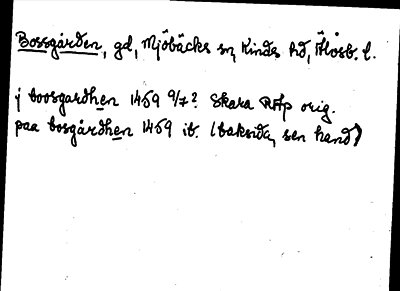 Bossgården, gd, Mjöbäcks sn, Kinds hd, Älvsb. l.
j boosgardhen 1459 9/7? Skara RAp orig.
paa bosgårdhen 1459 ib. (baksida, sen hand)